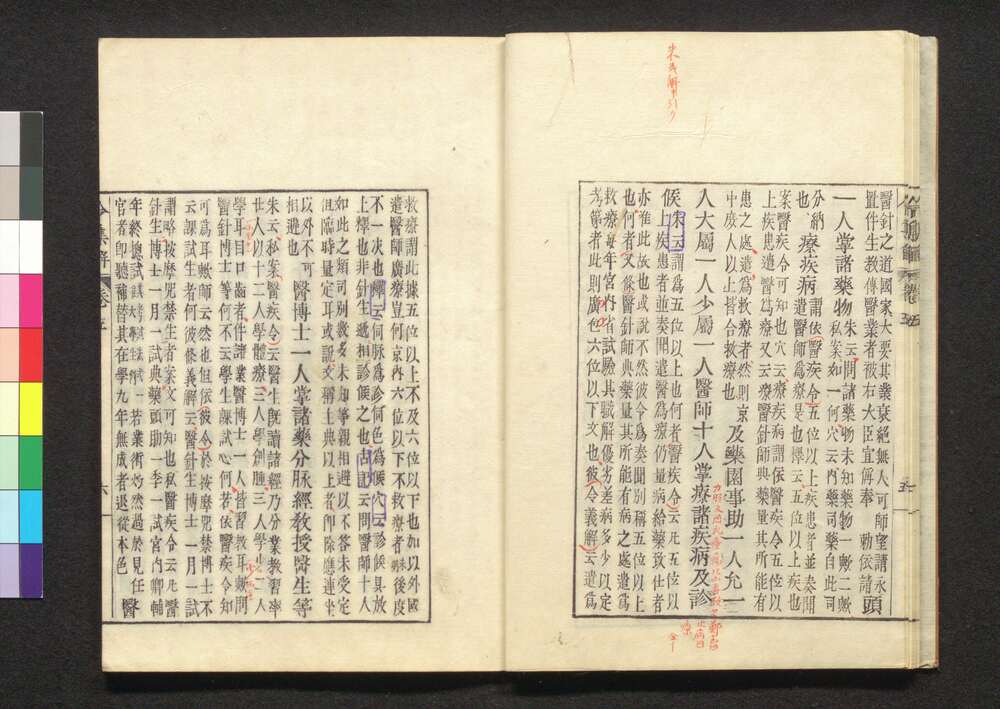 醫針之道國家大要其業衰絕無人可師望請永
置件生教傳醫業者被右大臣宣偁奉 勅依請
頭
一人掌諸藥物
朱云問諸藥物未知藥物一歟二歟
私案如一何穴云內藥司藥自此司
分納也
療疾病
謂依醫疾令五位以上疾患者並奏聞
遣醫師爲療是也釋云五位以上疾也
案醫疾令可知也穴云療疾病謂依醫疾令五位以
上疾患遣醫爲療又云療醫針師典藥量其所能有
患之處遣爲救療者然則京
中庶人以上皆合救療也
及藥園事助一人允一
人大屬一人少屬一人醫師十人掌療諸疾病及診
候
朱云謂爲五位以上也何者醫疾令云凡五位以
上疾患者並奏聞遣醫爲療仍量病給藥致仕者
亦准此故也或說不然彼令爲奏聞別稱五位以上
也何者又條醫針師典藥量其所能有病之處遣爲
救療每年宮內省試驗其職解優劣差病多少以定
考等者此則廣色六位以下文也彼令義解云遣爲
救療謂此據五位以上不及六位以下也如以外國
遣醫師廣療豈何京內六位以下不救療者 後度
不一次也釋云何脉爲診何色爲候穴云診候具放
上釋也非針生遞相診候之也古記云問醫師十人
如此之類司別數多未知爭親相避以不答未受定
但臨時量定耳或說文稱主典以上者即除應連坐
以外不可
相避也
醫博士一人掌諸藥分脉經教授醫生等
朱云私案醫疾令云醫生既讀諸經乃分業教習率
廿人以十二人學體療三人學創腫三人學少小二人
學耳目口齒者件諸業醫博士一人皆習教耳歟問
醫針博士等何不云學生課試心何若依醫疾令知
可爲耳歟師云然也但依彼令於按摩咒禁博士不
云課試生者何彼條義解云醫針生博士一月一試
謂略按摩咒禁生者案文可知也私醫疾令云凡醫
針生博士一月一試典藥頭助一季一試宮內卿輔
年終總試
若業術灼然過於見任
官者即聽補替其在學九年無成者退從本色
醫